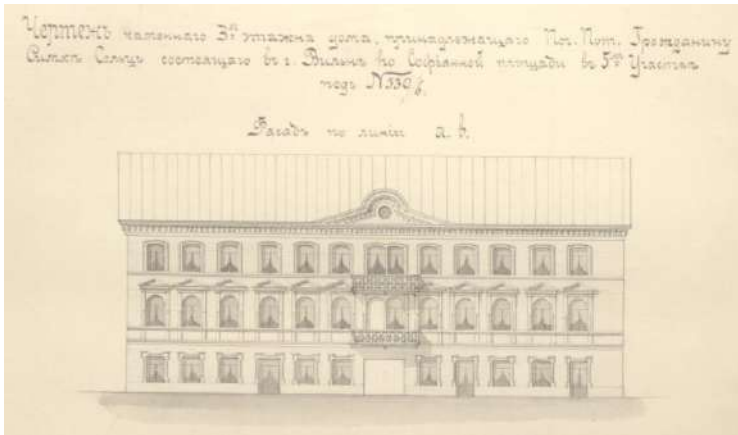 Чертежъ каменнаго 3хъ этажна дома, принадлежащаго Поч. Пот. Гражданину
Симхѣ Сольцъ состоящаго въ г. Вильнѣ по площади въ 5мъ Участкѣ
подъ № 530
Фасадъ по линіи a. b.